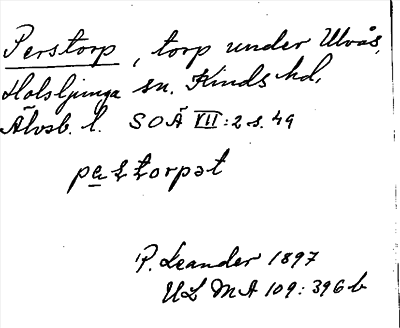 Perstorp, torp under Ulvås,
Holsljunga sn. Kinds hd,
Älvsb. l. SOÄ VII:2 s. 49
P. Leander 1897
ULMA 109:396b